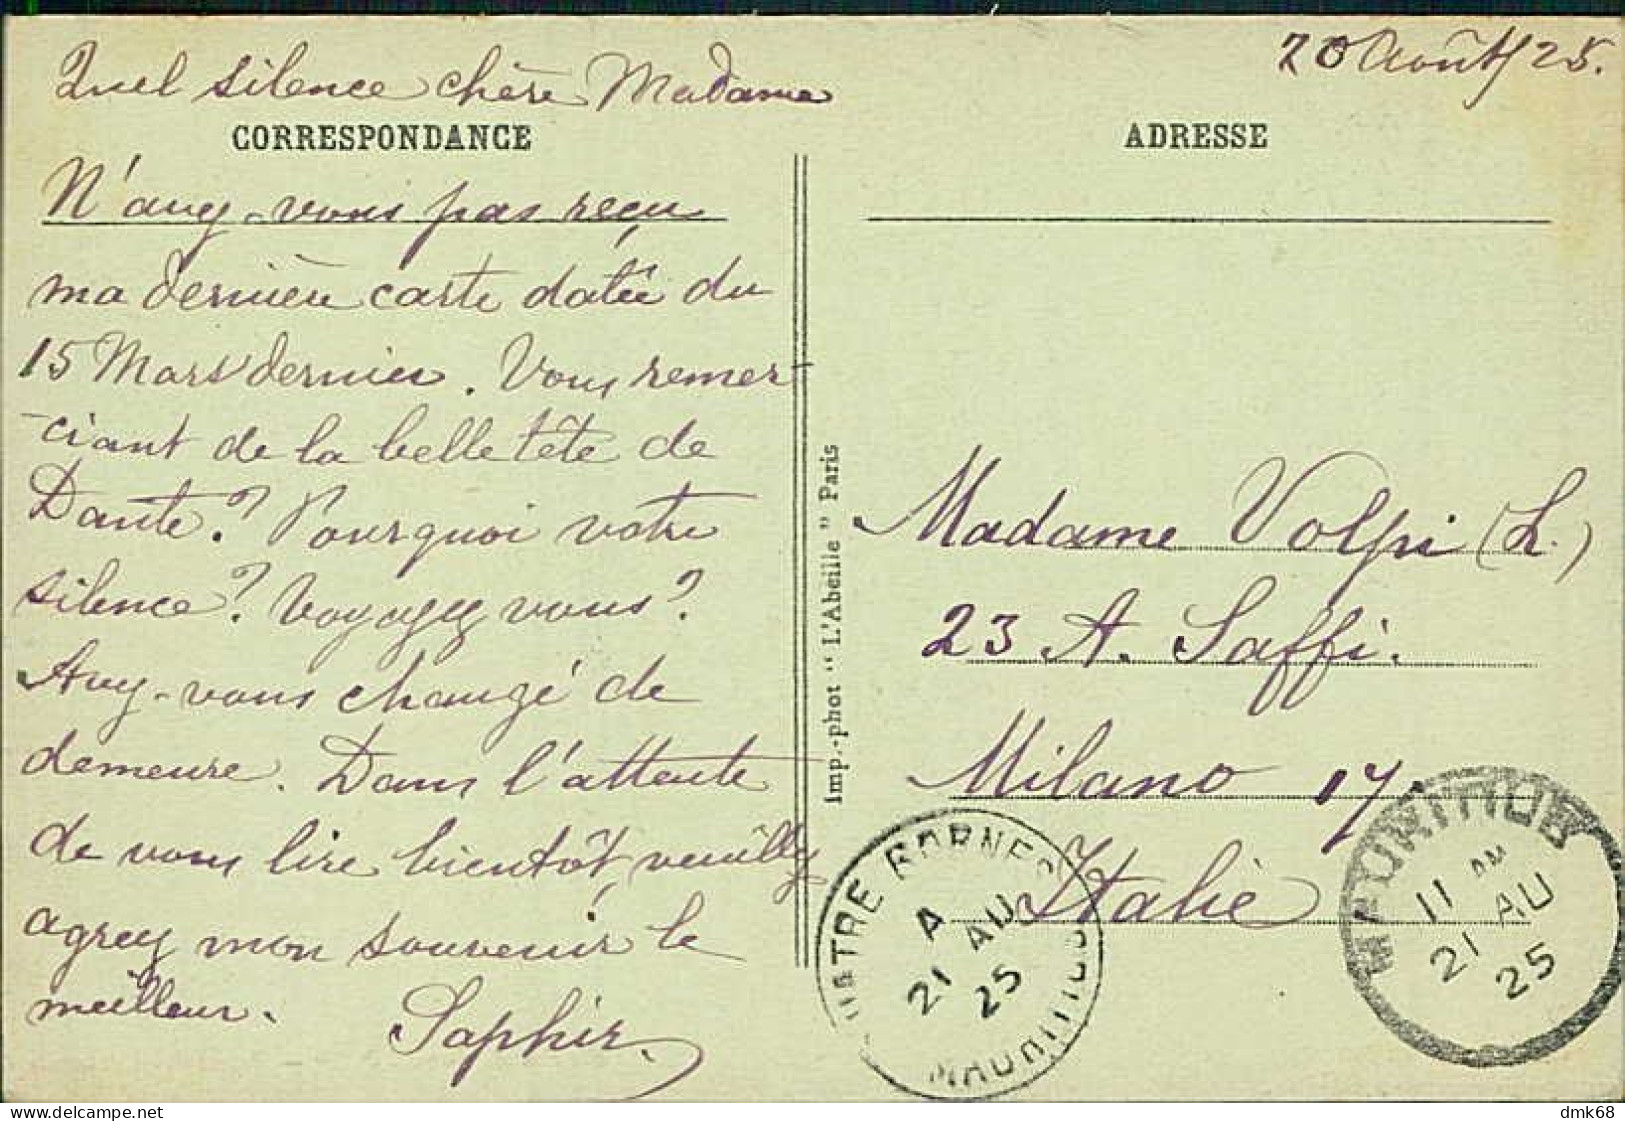 20 Août 25.
Quel silence chère Madame
CORRESPONDANCE
N'avez-vous pas reçu
ma dernière carte datée du
15 Mars dernier. Vous remer-
-ciant de la belle tête de
Dante? Pourquoi votre
silence? Voyagez vous?
Avez-vous changé de
demeure. Dans l'attente
de vous lire bientôt, veuillez
agréez mon souvenir le
meilleur. Saphir.
Imp.-phot "L'Abeille" Paris
ADRESSE
Madame Volpi (L.)
23 A. Saffi.
Milano 17
Italie
QUATRE BORNES
A
21 AU
25
MAURITIUS
MAURITIUS
11 AM
21 AU
25
delcampe.net
dmk68